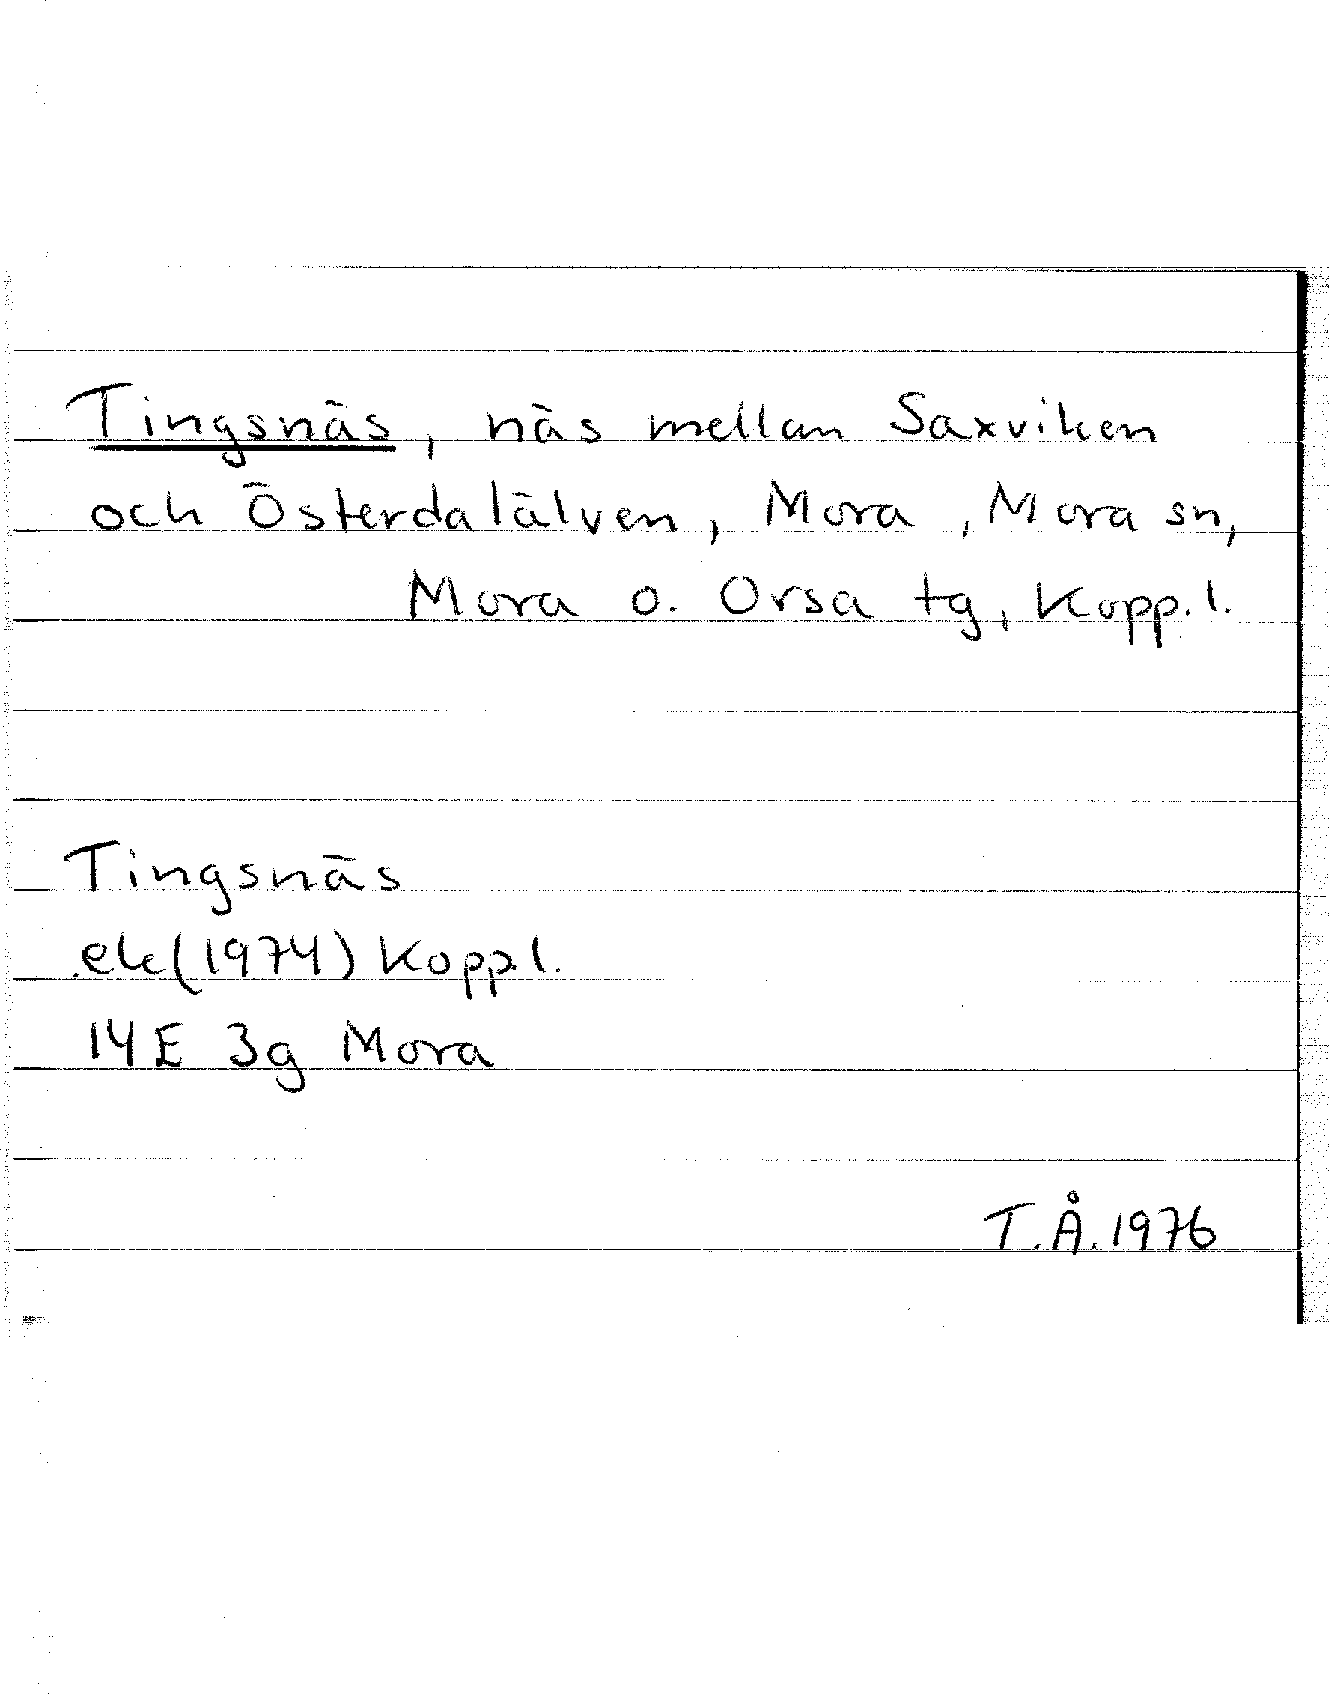 Tingsnäs, näs mellan Saxviken
och Österdalälven, Mora, Mora sn,
Mora o. Orsa tg, Kopp. l.
Tingsnäs
ek (1974) Kopp l.
14E 3g Mora
T.Å. 1976